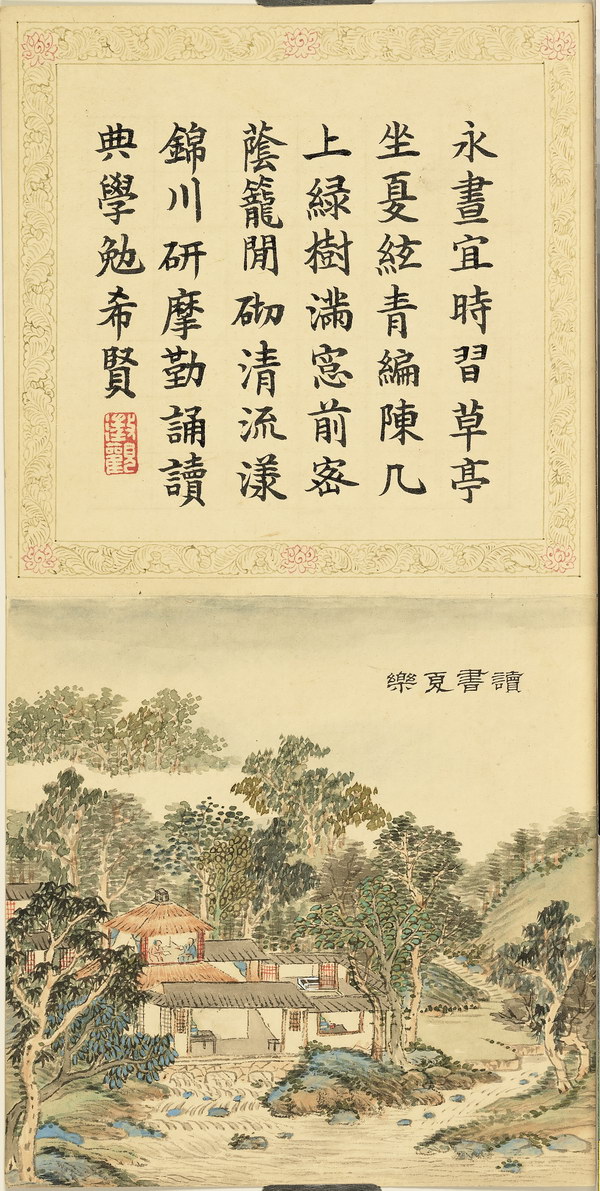 永晝宜時習草亭
坐夏絃青編陳几
上緑樹滿窓前密
蔭籠閒砌清流漾
錦川研摩勤誦讀
典學勉希賢
讀書夏樂